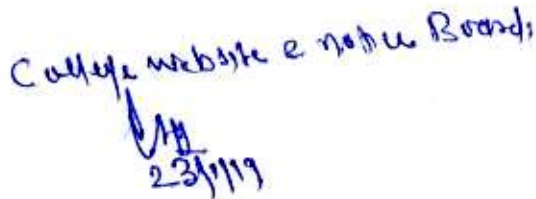 College website & notice Board
23/1/19